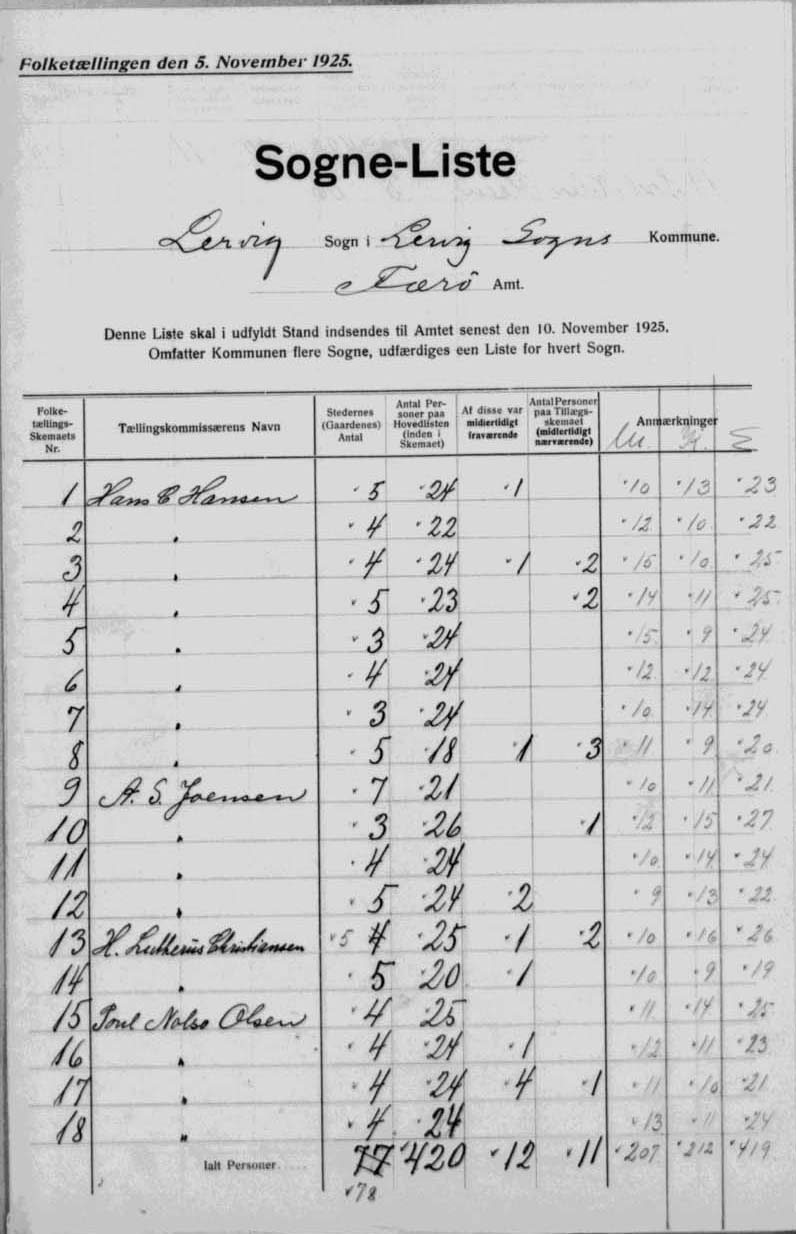 Folketællingen den 5. November 1925.
Sogne-Liste
Lervig Sogn i Lervig Sogns Kommune.
Færö Amt.
Denne Liste skal i udfyldt Stand indsendes til Amtet senest den 10. November 1925.
Omfatter Kommunen flere Sogne, udfærdiges een Liste for hvert Sogn.
Folke-tællings-Skemaets Nr. Tællingskommissærens Navn Stedernes (Gaardenes) Antal Antal Per-soner paa Hovedlisten (inden i Skemaet) Af disse var midlertidigt fraværende Antal Personer paa Tillægs-skemaet (midlertidigt nærværende) Anmærkninger
M. K. Σ
1 Hans C Hansen 5 24 1 10 13 23
2 " 4 22 12 10 22
3 " 4 24 1 2 15 10 25
4 " 5 23 2 14 11 25
5 " 3 24 15 9 24
6 " 4 24 12 12 24
7 " 3 24 10 14 24
8 " 5 18 1 3 11 9 20
9 A. S. Joensen 7 21 10 11 21
10 " 3 26 1 12 15 27
11 " 4 24 10 14 24
12 " 5 24 2 9 13 22
13 H. Lutherus Christiansen 5 4 25 1 2 10 16 26
14 " 5 20 1 10 9 19
15 Poul Nolsø Olsen 4 25 11 14 25
16 " 4 24 1 12 11 23
17 " 4 24 4 1 11 10 21
18 " 4 24 13 11 24
Ialt Personer 77 420 12 11 207 212 419
78